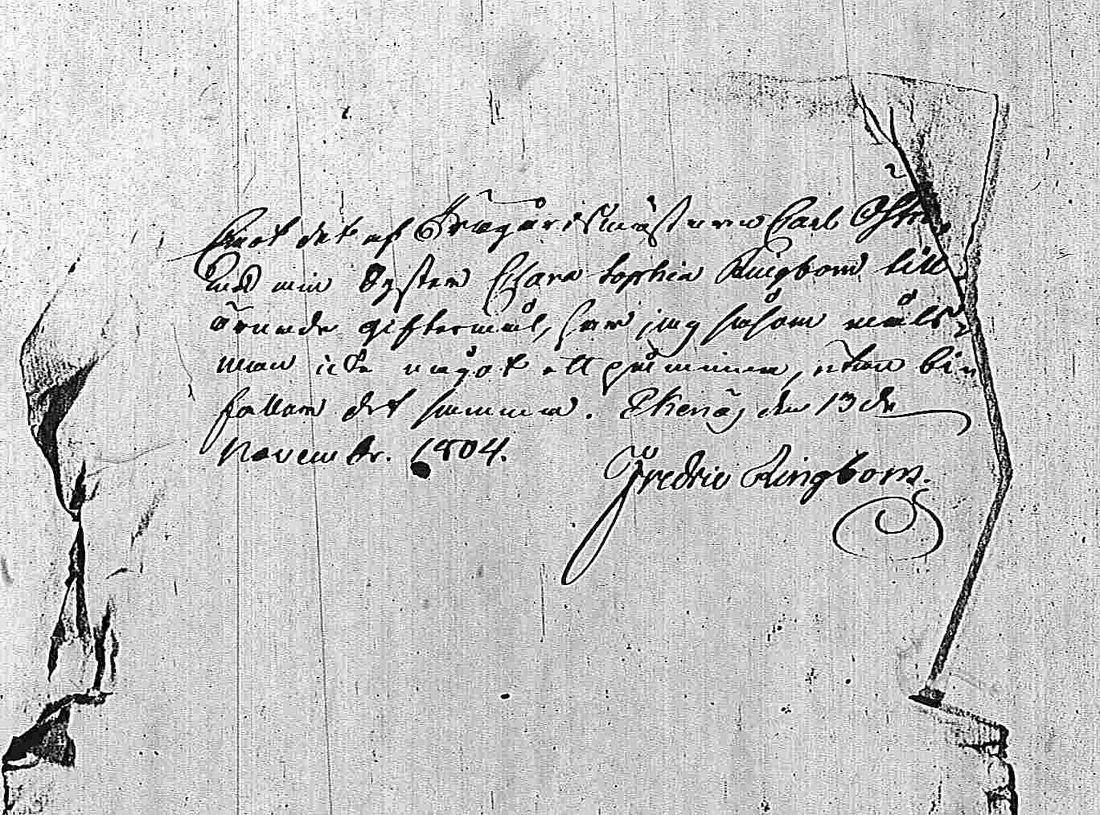 Emot det af Trägårdsmästaren Carl Öst
med min Syster Clara Sophia Ringbom till
ärnade giftermål, har jag såsom måls-
man icke något att påminna, utan bi-
faller det samma. Ekenäs den 13de
Novembr. 1804.
Fredric Ringbom.